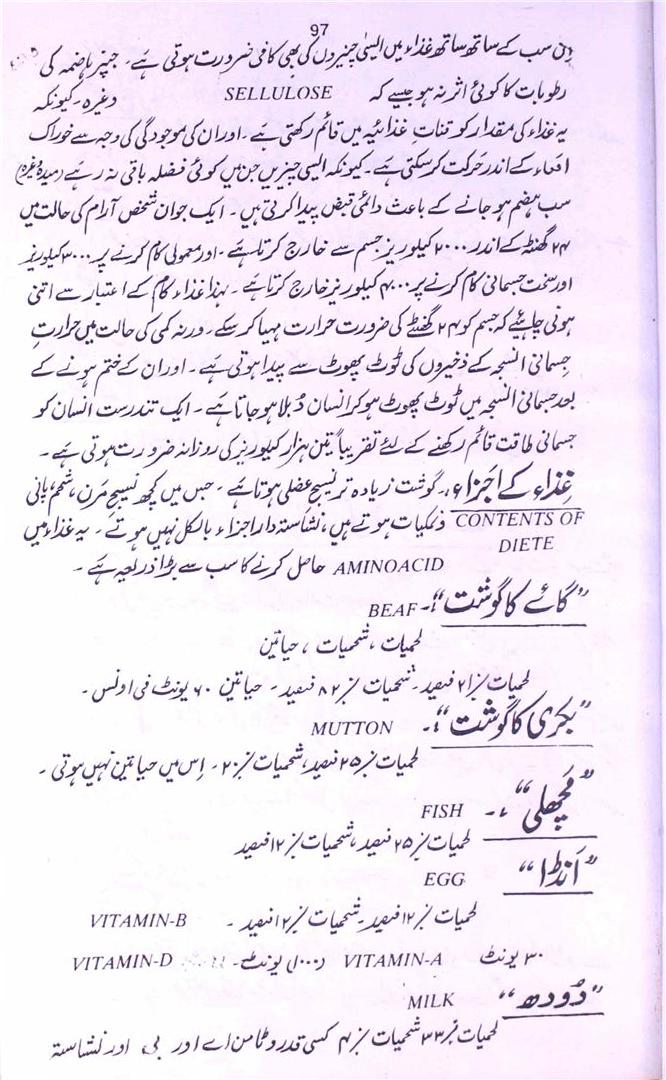 97
اِن سب کے ساتھ ساتھ غذاء میں ایسی چیزوں کی بھی کافی ضرورت ہوتی ہے۔ جنپر ہاضمہ کی
رطوبات کا کوئی اثر نہ ہو جیسے کہ SELLULOSE وغرہ۔ کیونکہ
یہ غذاء کی مقدار کو تناتِ غذائیہ میں قائم رکھتی ہے۔ اور ان کی موجودگی کی وجہ سے خوراک
امعاء کے اندر حرکت کر سکتی ہے۔ کیونکہ ایسی چیزیں جن میں کوئی فضلہ باقی نہ رہے (میدہ وغیرہ)
سب ہضم ہو جانے کے باعث دائمی قبض پیدا کرتی ہیں۔ ایک جوان شخص آرام کی حالت میں
۲۴ گھنٹہ کے اندر ۲۰۰۰ کیلوریز جسم سے خارج کرتا ہے۔ اور معمولی کام کرنے پر ۳۰۰۰ کیلوریز
اور سخت جسمانی کام کرنے پر ۴۰۰۰ کیلوریز خارج کرتا ہے۔ لہذا غذاء کام کے اعتبار سے اتنی
ہونی چاہیئے کہ جسم کو ۲۴ گھنٹے کی ضرورت حرارت مہیا کر سکے۔ ورنہ کمی کی حالت میں حرارت
جسمانی انسجہ کے ذخیروں کی ٹوٹ پھوٹ سے پیدا ہوتی ہے۔ اور ان کے ختم ہونے کے
بعد جسمانی انسجہ میں ٹوٹ پھوٹ ہو کر انسان دُبلا ہو جاتا ہے۔ ایک تندرست انسان کو
جسمانی طاقت قائم رکھنے کے لئے تقریباً تین ہزار کیلوریز کی روزانہ ضرورت ہوتی ہے۔
غذاء کے اجزاء :۔ گوشت زیادہ تر نسیج عضلی ہوتا ہے۔ جس میں کچھ نسیج مَرن، شحم، پانی
CONTENTS OF DIETE نمکیات ہوتے ہیں، نشاستہ دار اجزاء بالکل نہیں ہوتے۔ یہ غذاء میں
AMINOACID حاصل کرنے کا سب سے بڑا ذریعہ ہے۔
”گائے کا گوشت“:۔ BEAF
لحمیات، شحمیات، حیاتین
لحمیات ٪۲۱ فیصد۔ شحمیات ٪۸۲ فیصد۔ حیاتین ۶۰ یونٹ فی اونس۔
”بکری کا گوشت“:۔ MUTTON
لحمیات ٪۲۵ فیصد، شحمیات ٪۲۰۔ اِس میں حیاتین نہیں ہوتی۔
”مَچھلی“ :۔ FISH
لحمیات ٪۲۵ فیصد، شحمیات ٪۱۲ فیصد
”اَنڈا“ EGG
لحمیات ٪۱۲ فیصد۔ شحمیات ٪۱۲ فیصد۔ VITAMIN-B
۳۰ یونٹ VITAMIN-A (۱۰۰۰ یونٹ۔ VITAMIN-D
”دُودھ“ MILK
لحمیات ٪۳۳ شحمیات ٪۴ کسی قدر وٹامن اے اور بی اور نشاستہ